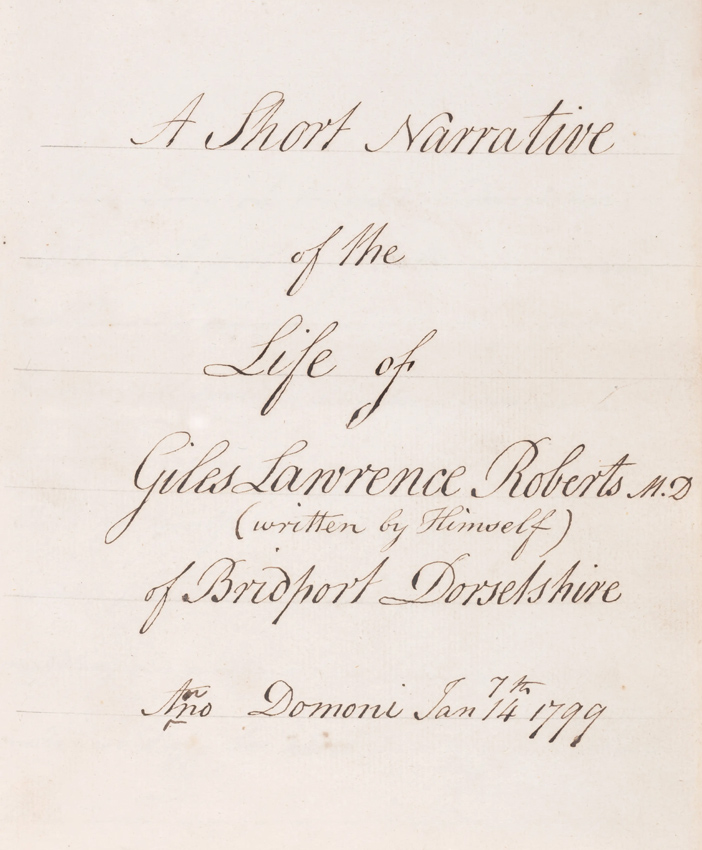 A Short Narrative
of the
Life of
Giles Lawrence Roberts M.D
(written by Himself)
of Bridport Dorsetshire
Domoni Jan 14 7th 1799